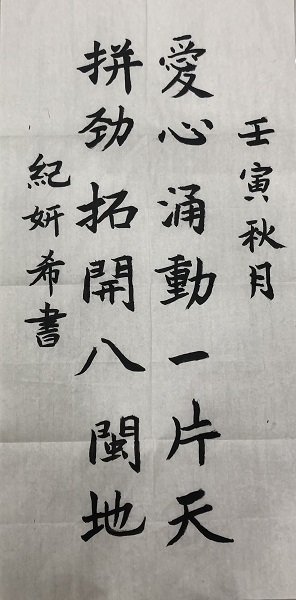 壬寅秋月
愛心涌動一片天
拼勁拓開八閩地
紀妍希書